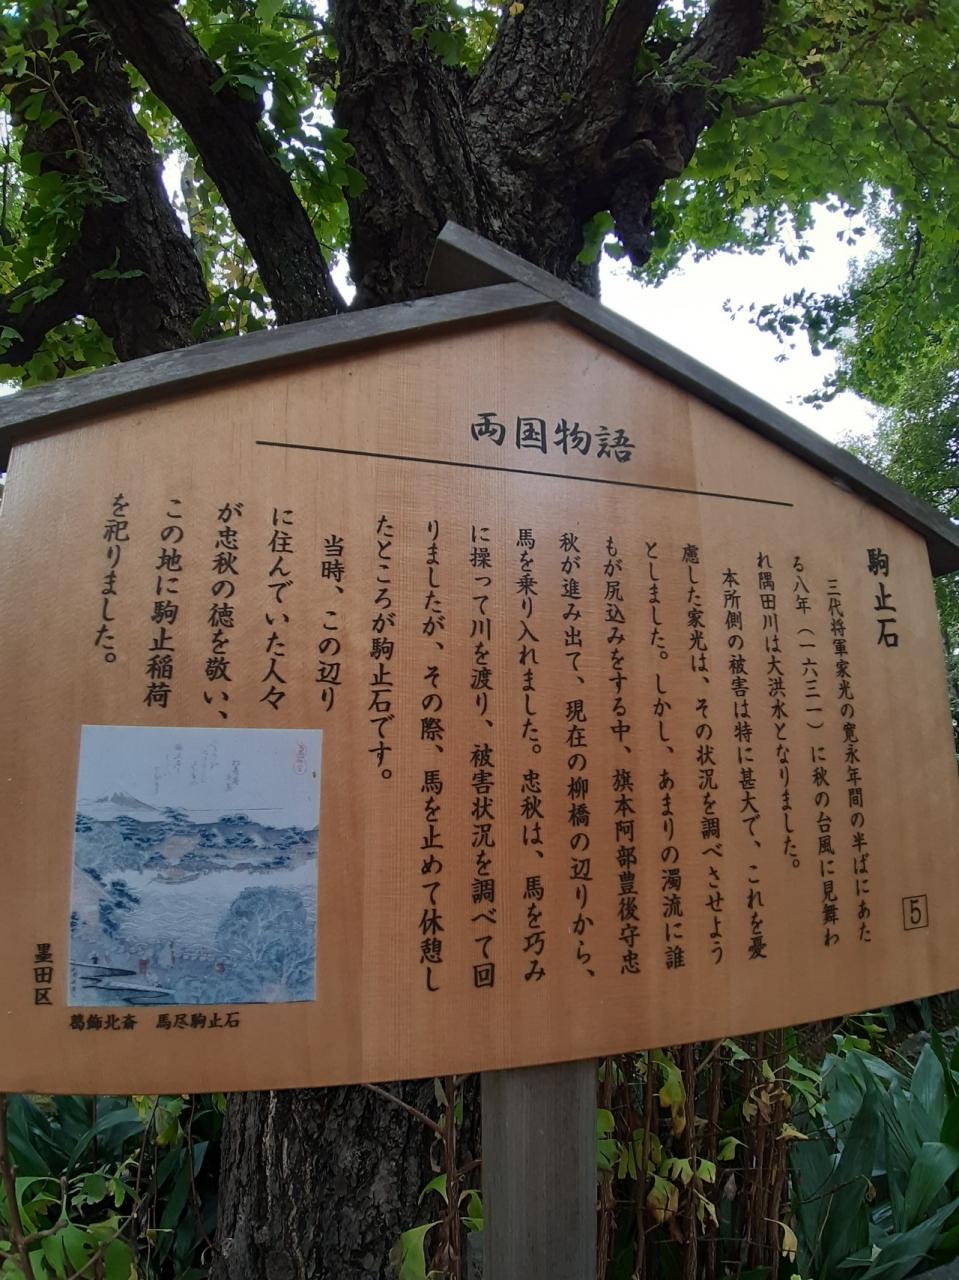 両国物語
駒止石
5
三代将軍家光の寛永年間の半ばにあた
る八年（一六三一）に秋の台風に見舞わ
れ隅田川は大洪水となりました。
本所側の被害は特に甚大で、これを憂
慮した家光は、その状況を調べさせよう
としました。しかし、あまりの濁流に誰
もが尻込みをする中、旗本阿部豊後守忠
秋が進み出て、現在の柳橋の辺りから、
馬を乗り入れました。忠秋は、馬を巧み
に操って川を渡り、被害状況を調べて回
りましたが、その際、馬を止めて休憩し
たところが駒止石です。
当時、この辺り
に住んでいた人々
が忠秋の徳を敬い、
この地に駒止稲荷
を祀りました。
葛飾北斎　馬尽駒止石
墨田区